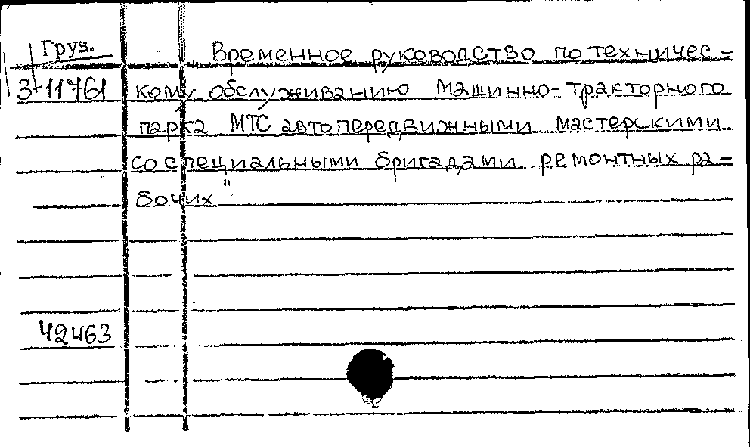 Груз.
3-11761
Временное руководство по техничес-
кому обслуживанию машинно-тракторного
парка МТС автопередвижными мастерскими
со специальными бригадами ремонтных ра-
бочих"
42463